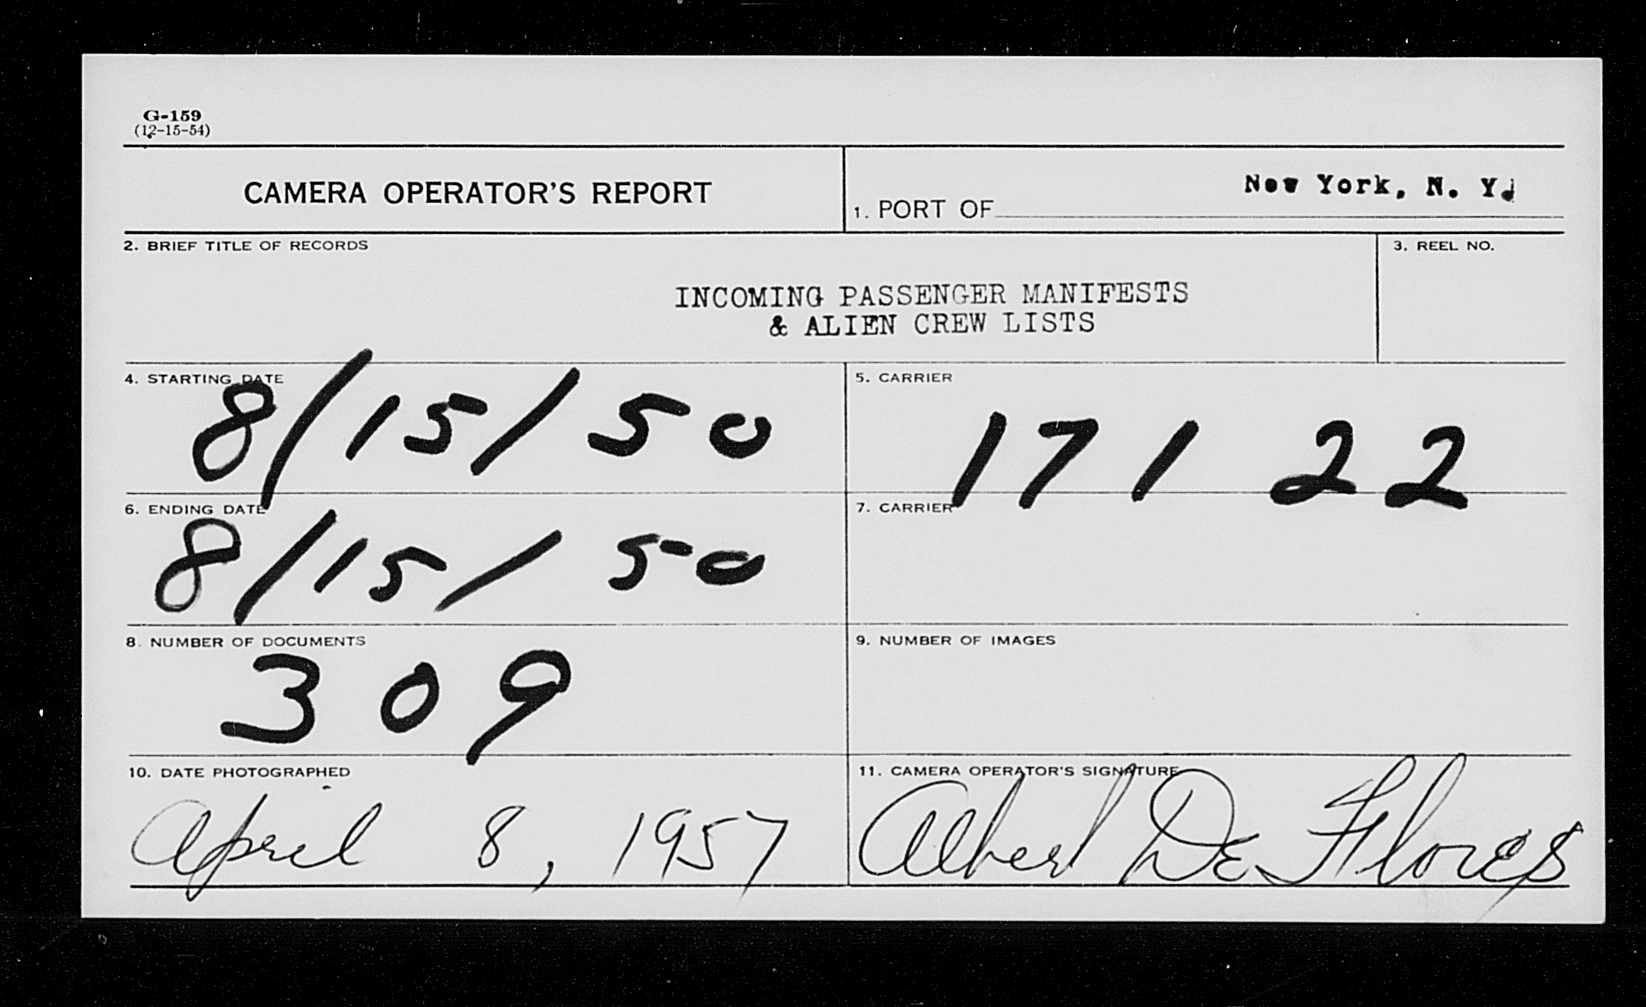 G-159
(12-15-54)
CAMERA OPERATOR'S REPORT
1. PORT OF New York, N. Y.
2. BRIEF TITLE OF RECORDS
3. REEL NO.
INCOMING PASSENGER MANIFESTS
& ALIEN CREW LISTS
4. STARTING DATE
8/15/50
5. CARRIER
17122
6. ENDING DATE
8/15/50
7. CARRIER
8. NUMBER OF DOCUMENTS
309
9. NUMBER OF IMAGES
10. DATE PHOTOGRAPHED
April 8, 1957
11. CAMERA OPERATOR'S SIGNATURE
Albert De Flores